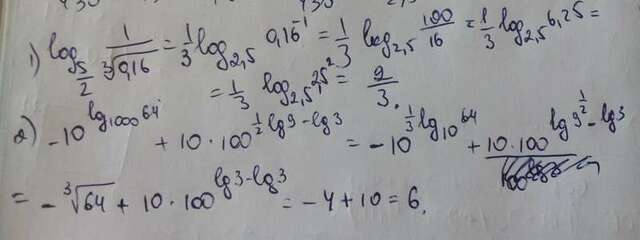 1) log_{5/2} 1/∛0,16 = 1/3 log_{2,5} 0,16^{-1} = 1/3 log_{2,5} 100/16 = 1/3 log_{2,5} 6,25 =
= 1/3 log_{2,5} 2,5^2 = 2/3.
2) -10^{lg_{1000} 64} + 10·100^{1/2 lg 9 - lg 3} = -10^{1/3 lg_{10} 64} + 10·100^{lg 9^{1/2} - lg 3}
= -∛64 + 10·100^{lg 3 - lg 3} = -4 + 10 = 6.